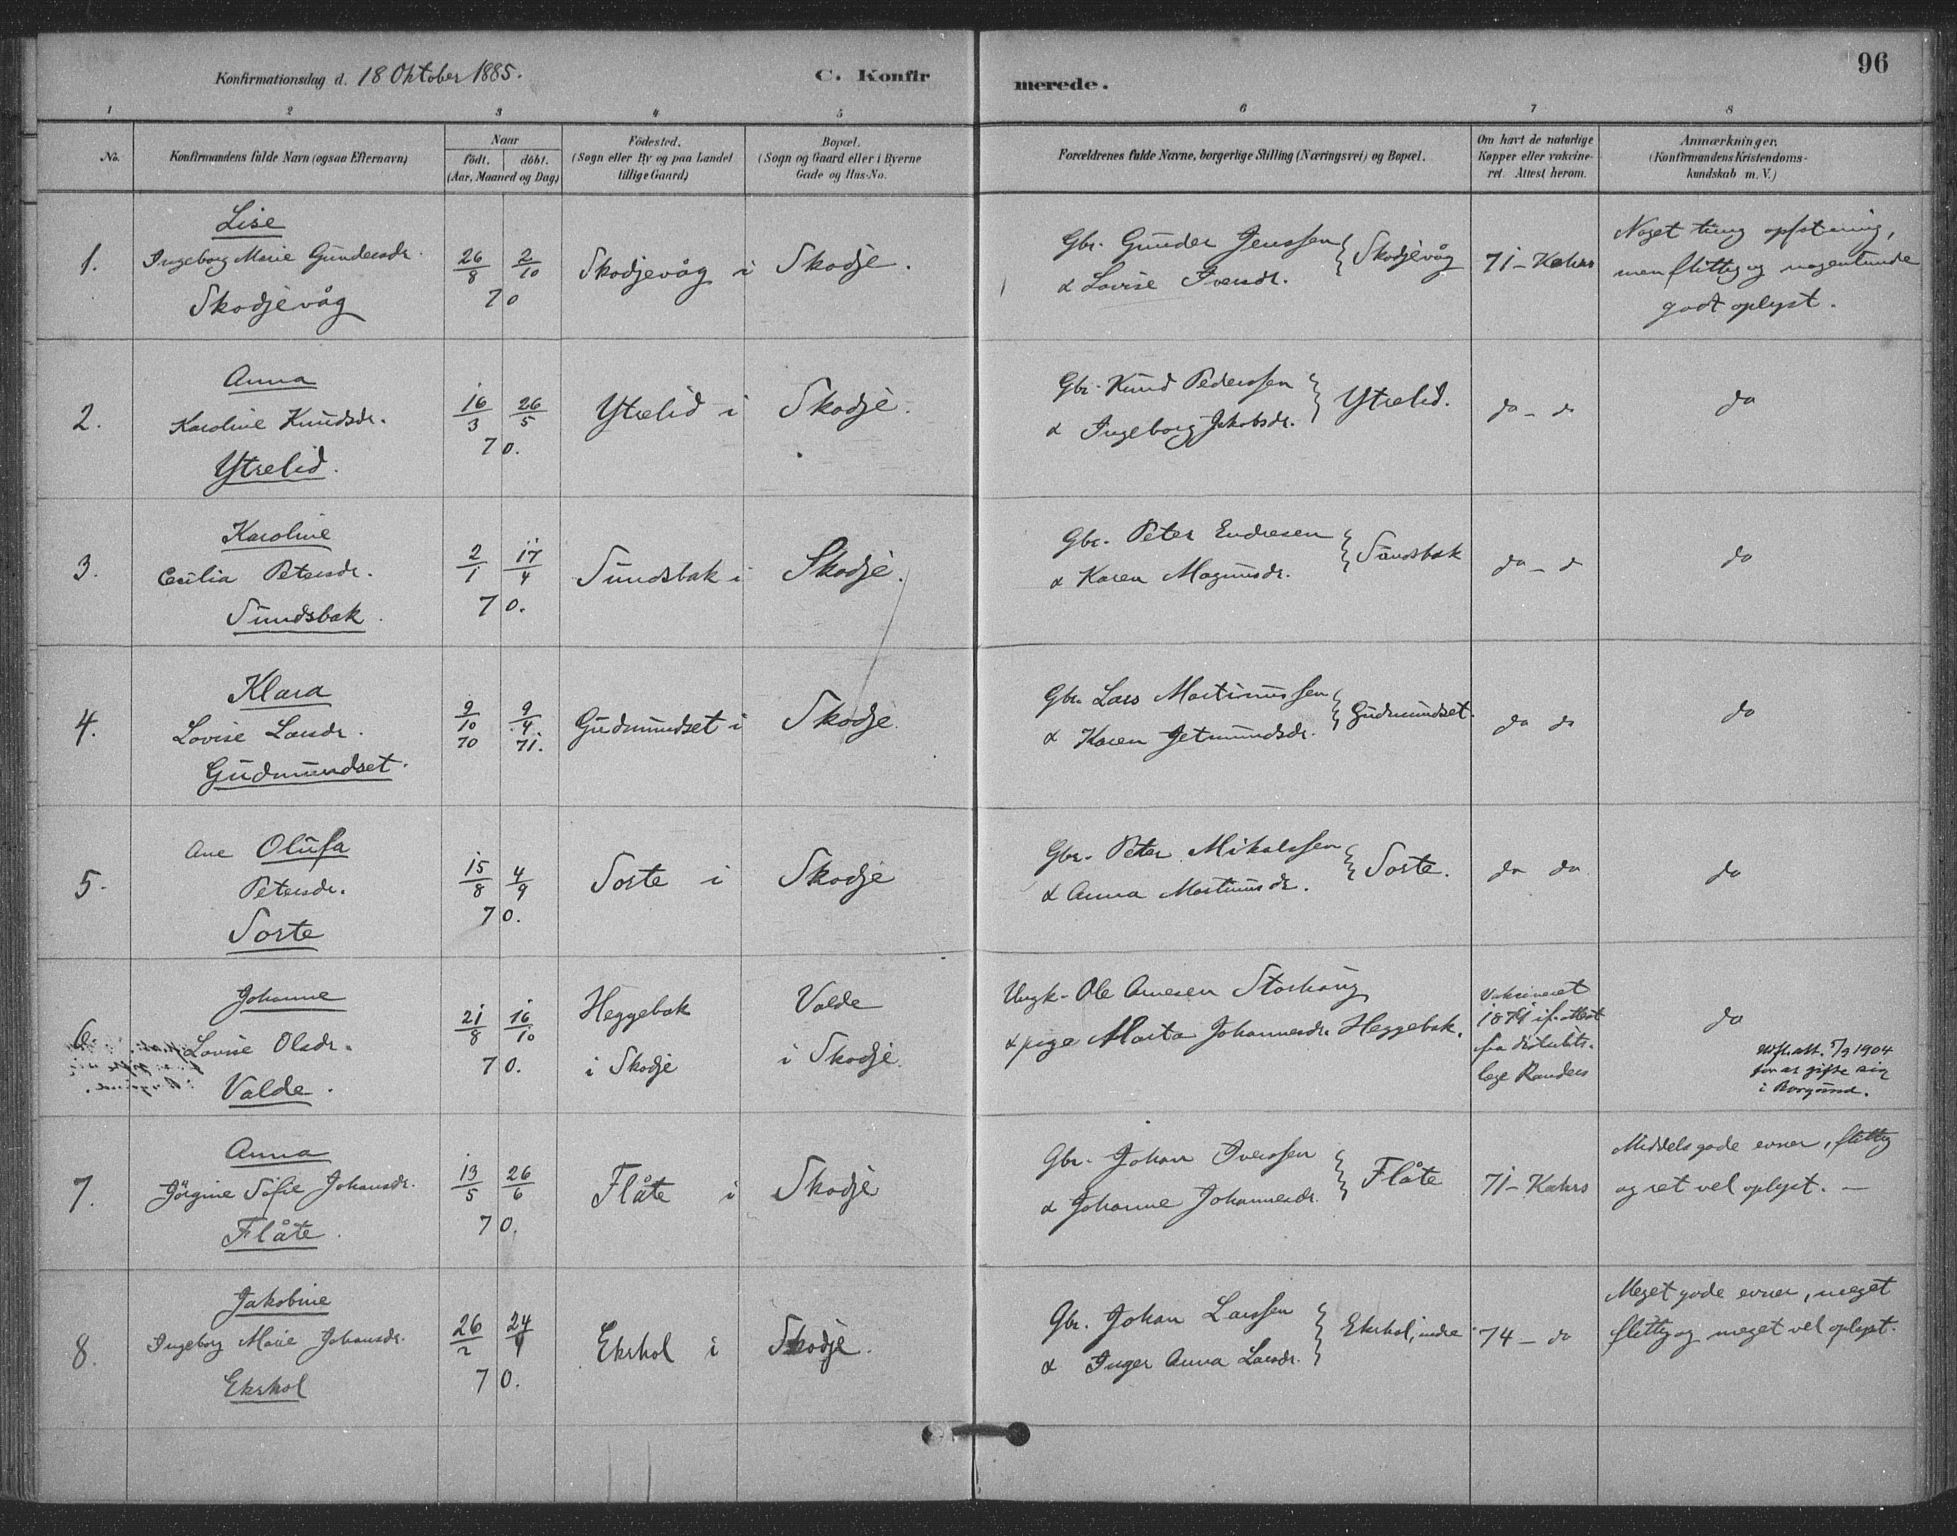 96
Konfirmationsdag d. 18 Oktober 1885.
C. Konfir
merede.
1 2 3 4 5 6 7 8
No.
Konfirmandens fulde Navn (ogsaa Efternavn)
Naar
födt. döbt.
(Aar, Maaned og Dag)
Födested.
(Sogn eller By og paa Landet
tillige Gaard)
Bopæl.
(Sogn og Gaard eller i Byerne
Gade og Hus-No.
Forældrenes fulde Navne, borgerlige Stilling (Næringsvei) og Bopæl.
Om havt de naturlige
Kopper eller vakcine-
ret. Attest herom.
Anmærkninger.
(Konfirmandens Kristendoms-
kundskab m. V.)
1.
Lise
Ingeborg Marie Gundersdr.
Skodjevåg
26/8 2/10
70
Skodjevåg i
Skodje.
Gbr. Gunder Jenssen
& Lovise Iversdr.
Skodjevåg
71 - Kahrs
Noget tung opfatning,
men flittig og nogenlunde
godt oplyst.
2.
Anna
Karoline Knudsdr.
Ytrelid.
16/3 26/5
70.
Ytrelid i
Skodje.
Gbr. Knud Pederssen
& Ingeborg Jakobsdr.
Ytrelid.
do - do
do
3.
Karoline
Cecilia Petersdr.
Sundsbak.
2/1 17/4
70.
Sundsbak i
Skodje.
Gbr. Peter Endresen
& Karen Magnusdr.
Sundsbak
do - do
do
4.
Klara
Lovise Larsdr.
Gudmundset.
9/10 9/4
70 71.
Gudmundset i
Skodje
Gbr. Lars Martinussen
& Karen Jetmundsdr.
Gudmundset.
do do
do
5.
Ane Olufa
Petersdr.
Sorte
15/8 4/9
70.
Sorte i
Skodje
Gbr. Peter Mikalssen
& Anna Martinusdr.
Sorte.
do do
do
6.
Johanne
Lovise Olsdr.
Valde.
21/8 16/10
70.
Heggebak
i Skodje
Valde
i Skodje.
Ungk. Ole Arnesen Storhaug
& pige Marta Johannesdr. Heggebak.
Vakcineret
1871 if. attest
fra distrikts-
læge Randers
do
Udst. att. 5/9 1904
for at gifte sig
i Borgund.
7.
Anna
Jörgine Sofie Johansdr.
Flåte.
13/5 26/6
70.
Flåte i
Skodje
Gbr. Johan Iverssen
& Johanne Johannesdr.
Flåte
71 - Kahrs
Middels gode evner, flittig
og ret vel oplyst. -
8.
Jakobine
Ingeborg Marie Johansdr.
Ekrhol
26/2 24/4
70.
Ekrhol i
Skodje.
Gbr. Johan Larssen
& Inger Anna Larsdr.
Ekrhol, indre
74 - do
Meget gode evner, meget
flittig og meget vel oplyst.